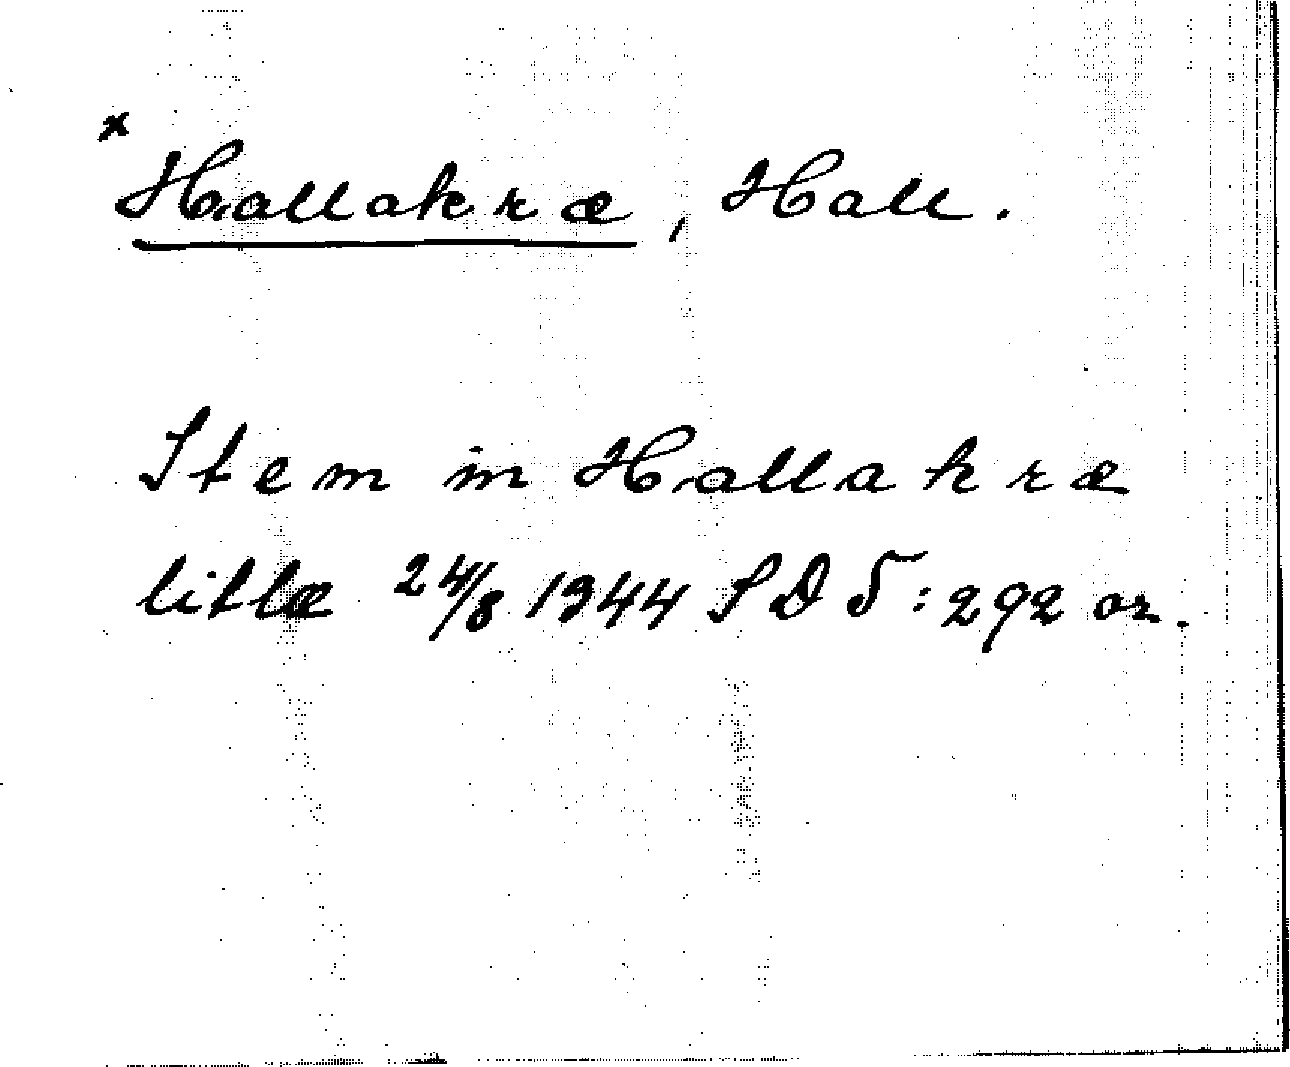 x
Hallakræ, Hall.
Item in Hallakræ
litlæ 24/8 1344 SD 5:292 or.